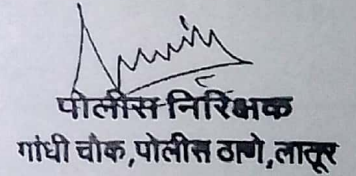 पोलीस निरिक्षक
गांधी चौक,पोलीस ठाणे,लातूर